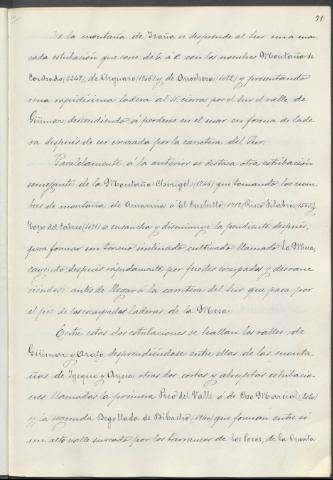 71
De la montaña de Izaña se desprende al Sur una mar-
cada estribación que corre de E. á O. con los nombres Montaña de
(2247), de (1956) y de (1092) y presentando
una rapidísima ladera al N. cierra por el Sur el valle de
Güimar, descendiendo á perderse en el mar en forma de lade
ra después de ser cruzada por la carretera del Sur.
Paralelamente á la anterior se destaca otra estribación
semejante de la Montaña que tomando los nom
bres de montaña de ó El Cuchillo (1712) Pino (1552) y
(1431) se ensancha y disminuye la pendiente después,
para formar un terreno inclinado cultivado llamado La Mesa,
cayendo después rápidamente por fuertes escarpados y desvane
ciéndose antes de llegar á la carretera del Sur que pasa por
el pie de las escarpadas laderas de la Mesa.
Entre estas dos estribaciones se hallan los valles de
Güimar y Arafo, desprendiéndose entre ellas de las monta
ñas de y otras dos cortas y abruptas estribacio
nes llamadas la primera Pico del Valle ó de
y la segunda Degollada de que forman entre sí
un alto valle surcado por los barrancos de , de la